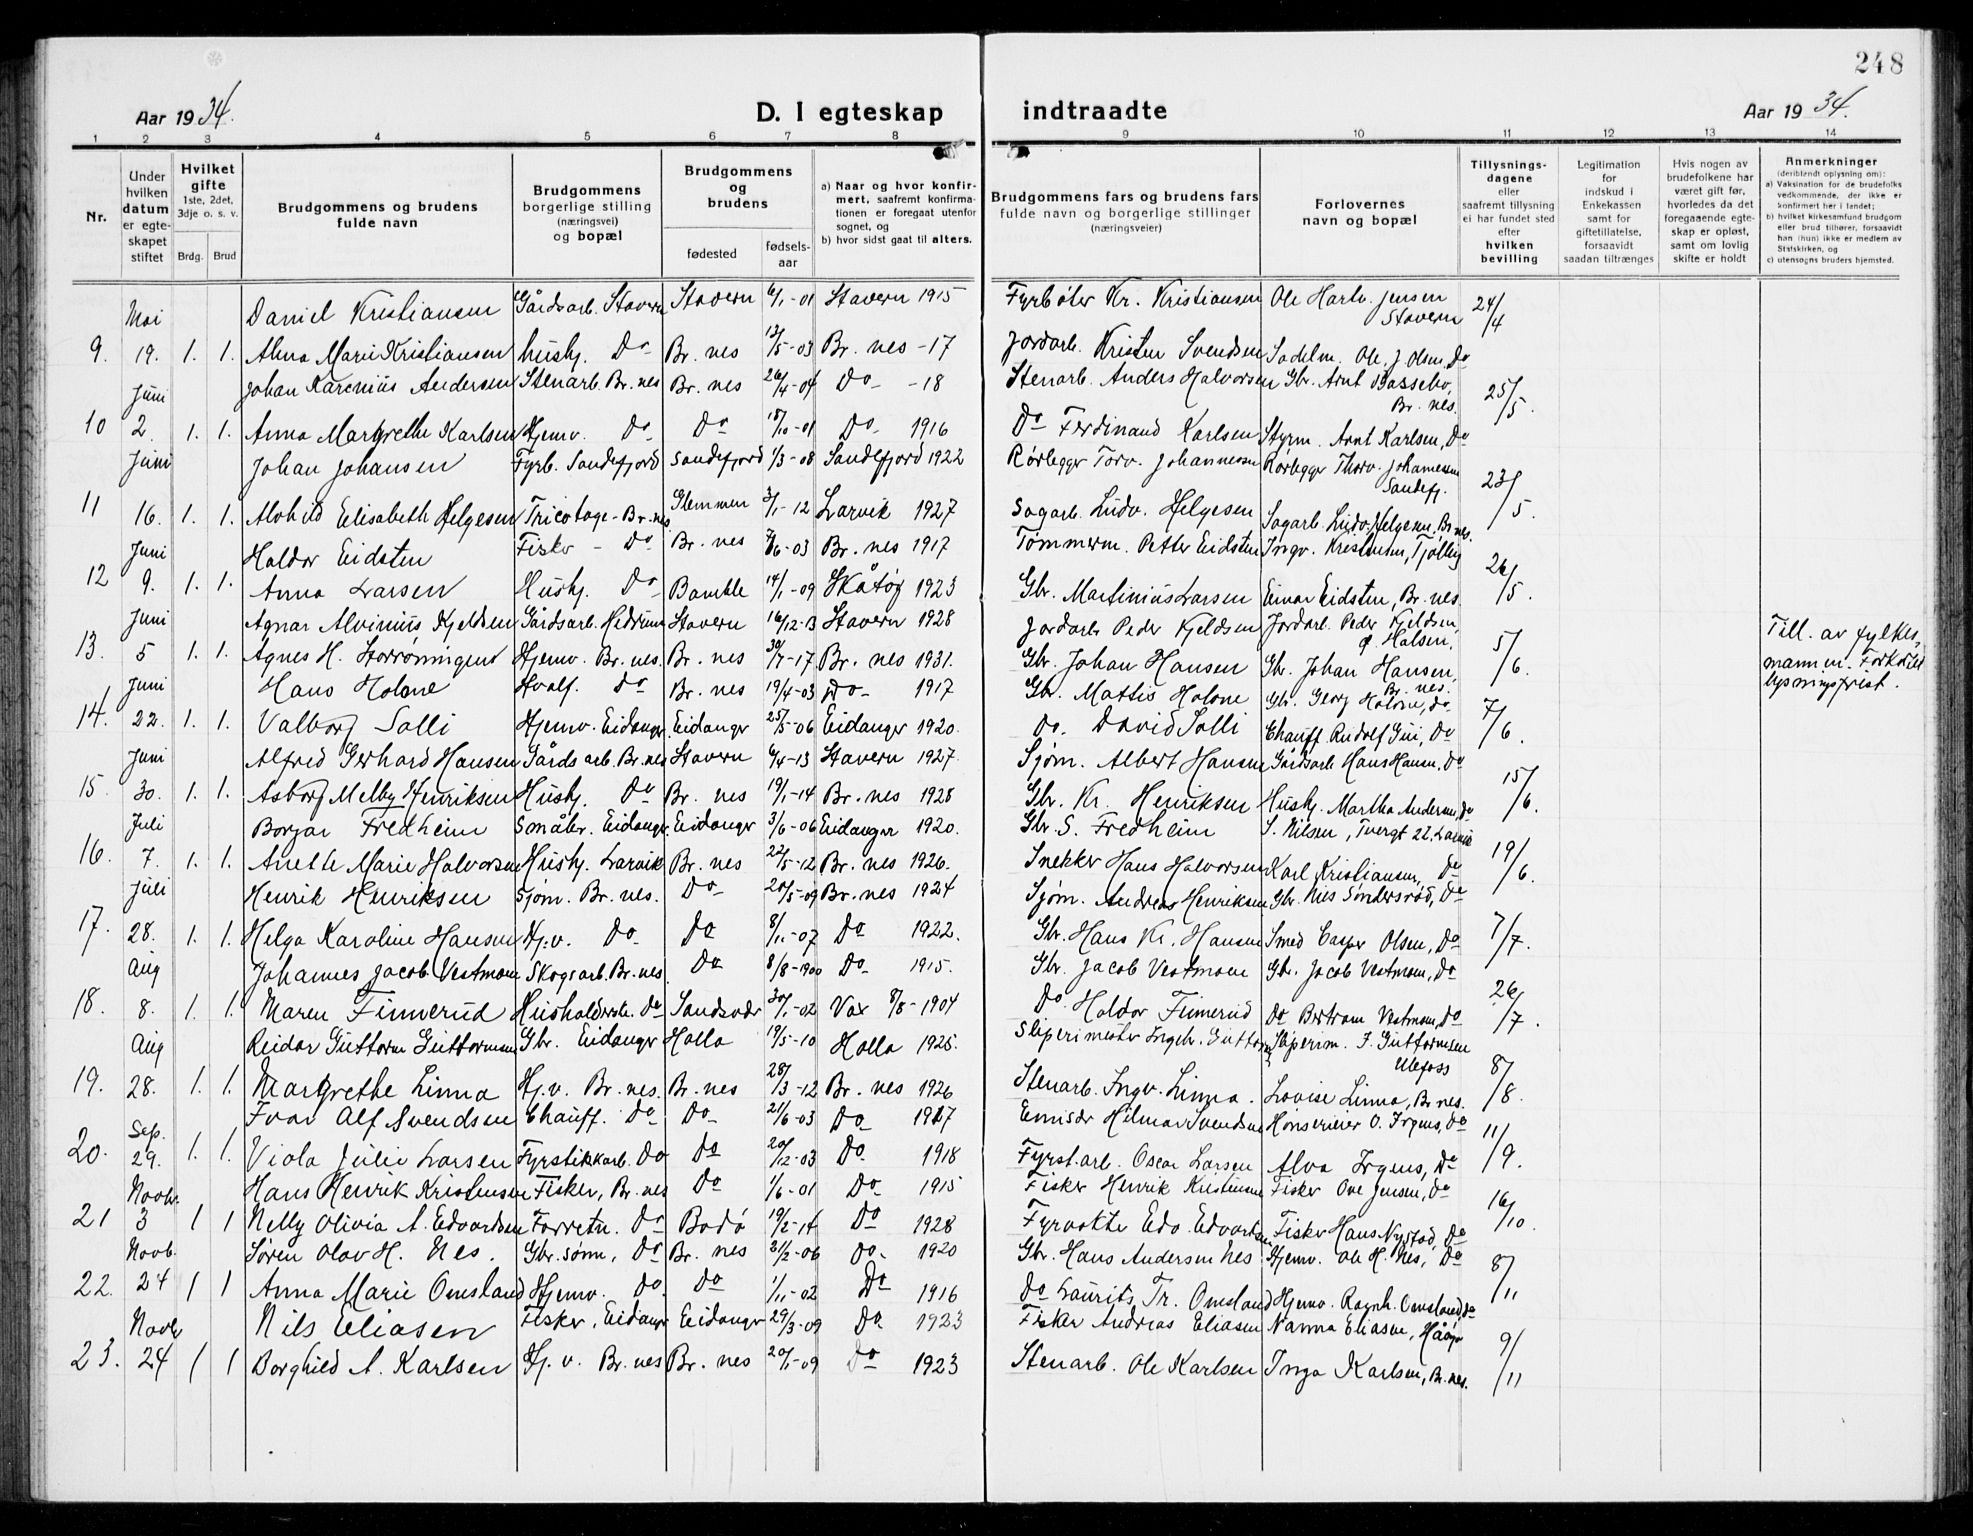 248
Aar 1934.
D. I egteskap indtraadte
Aar 1934.
1 2 3 4 5 6 7 8 9 10 11 12 13 14
Nr.
Under hvilken datum er egteskapet stiftet
Hvilket gifte 1ste, 2det, 3dje o. s. v.
Brdg. Brud
Brudgommens og brudens fulde navn
Brudgommens borgerlige stilling (næringsvei) og bopæl
Brudgommens og brudens
fødested
fødselsaar
a) Naar og hvor konfirmert, saafremt konfirmationen er foregaat utenfor sognet, og
b) hvor sidst gaat til alters.
Brudgommens fars og brudens fars fulde navn og borgerlige stillinger (næringsveier)
Forlovernes navn og bopæl
Tillysningsdagene eller saafremt tillysning ei har fundet sted efter hvilken bevilling
Legitimation for indskud i Enkekassen samt for giftetillatelse, forsaavidt saadan tiltrænges
Hvis nogen av brudefolkene har været gift før, hvorledes da det foregaaende egteskap er opløst, samt om lovlig skifte er holdt
Anmerkninger (deriblendt oplysning om):
a) Vaksination for de brudefolks vedkommende, der ikke er konfirmert her i landet;
b) hvilket kirkesamfund brudgom eller brud tilhører, forsaavidt han (hun) ikke er medlem av Statskirken, og
c) utensogns bruders hjemsted.
Mai Daniel Kristiansen Gårdsarb. Stavern Stavern 6/1-01 Stavern 1915 Fyrbøter Kr. Kristiansen Ole Hartv. Jensen Stavern 24/4
9. 19. 1. 1. Alma Marie Kristiansen husbj. Do Br. nes 12/5-03 Br. nes -17 Jordarb. Kristen Svendsen Sadelm. Ole J. Olsen, Do
Juni Johan Karenius Andersen Stenarb. Br. nes Br. nes 26/4-04 Do -18 Stenarb. Anders Halvorsen Gbr. Arnt Bassebo, Br. nes. 25/5.
10 2. 1. 1. Anna Margrethe Karlsen Hjemv. Do Do 18/10-01 Do 1916 Do Ferdinand Karlsen Styrm. Arnt Karlsen, Do
Juni Johan Johansen Fyrb. Sandefjord Sandefjord 1/3-08 Sandefjord 1922 Rørlegger Torv. Johannessen Rørlegger Thorv. Johannessen Sandefj. 23/5.
11 16. 1. 1. Alvhild Elisabeth Helgesen Tricotage- Br. nes Glemmen 3/1-12 Larvik 1927 Sagarb. Ludv. Helgesen Sagarb. Ludv. Helgesen, Br. nes.
Juni Haldor Eidsten Fisker - Do Br. nes 7/6-03 Br. nes 1917 Tømmerm. Petter Eidsten Ingv. Kristensen, Tjølling 26/5.
12 9. 1. 1. Anna Larsen Husbj. Do Bamble 14/1-09 Skåtøy 1923 Gbr. Martinius Larsen Einar Eidsten, Br. nes.
Juni Agnar Alvinius Kjeldsen Gårdsarb. Hedrum Stavern 16/12-13 Stavern 1928 Jordarb. Peder Kjeldsen Jordarb. Peder Kjeldsen, Halsen, 5/6. Till. av fylkesmannen. Forkortet lysningsfrist.
13. 5 1. 1. Agnes H. Storrønningent Hjemv. Br. nes. Br. nes 30/7-17 Br. nes 1931. Gbr. Johan Hansen Gbr. Johan Hansen, Br. nes.
Juni Hans Holane Hvalf. Do Br. nes 19/4-03 Do 1917 Gbr. Mathis Holane Gbr. Georg Holane, Do 7/6.
14. 22. 1. 1. Valborg Solli Hjemv. Eidanger Eidanger 25/5-06 Eidanger 1920. Do. David Solli Chauff. Rudolf Gui, Do
Juni Alfred Gerhard Hansen Gårdsarb. Br. nes Stavern 6/4-13 Stavern 1927. Sjøm. Albert Hansen Gårdsarb Hans Hansen, Do 15/6.
15. 30. 1. 1. Asborg Melby Henriksen Husbj. Do Br. nes 19/1-14 Br. nes 1928 Gbr. Kr. Henriksen Husbj. Martha Andersen, Do
Juli Borgar Fredheim Småbr. Eidanger Eidanger 3/6-06 Eidanger 1920. Gbr S. Fredheim S. Nilsen, Tvergt 22. Larvik 19/6.
16. 7. 1. 1. Anette Marie Halvorsen Husbj. Larvik Br. nes 22/5-12 Br. nes 1926. Snekker Hans Halvorsen Karl Kristiansen, Do
Juli Henrik Henriksen Sjøm. Br. nes. Do 20/5-09 Br. nes 1924 Sjøm. Andreas Henriksen Gbr. Nils Søndersrød, Do 7/7.
17. 28. 1. 1. Helga Karoline Hansen Hj.v. Do Do 8/11-07 Do 1922. Gbr. Hans Kr. Hansen Smed Casper Olsen, Do
Aug Johannes Jacob Vestmoen Skogsarb. Br. nes. Do 8/8-1900 Do 1915. Gbr. Jacob Vestmoen Gbr. Jacob Vestmoen, Do 26/7.
18. 8. 1. 1. Maren Finnerud Husholderske. Do Sandsvær 30/1-02 Vax 8/8-1904 Do Haldor Finnerud Do Bertram Vestmoen, Do
Aug Reidar Guttorm Guttormsen Gbr. Eidanger Holla 19/5-10 Holla 1925. Sliperimester Ingebr. Guttormsen Sliperim. I. Guttormsen Ulefoss 8/8.
19. 28. 1. 1. Margrethe Linna Hj.v. Br. nes. Br. nes 28/3-12 Br. nes 1926 Stenarb. Ingv. Linna. Lovise Linna, Br. nes.
Sep. Ivar Alf Svendsen Chauff. Do Do 21/6-03 Do 1917 Emisær Hilmar Svendsen Hønserieier O. Irgens, Do 11/9.
20. 29. 1. 1. Viola Julie Larsen Fyrstikkarb. Do Do 20/12-03 Do 1918 Fyrst.arb. Oscar Larsen Alva Irgens, Do
Novbr. Hans Henrik Kristensen Fisker, Br. nes Do 1/6-01 Do 1915 Fisker Henrik Kristensen Fisker Ove Jensen, Do 16/10.
21 3 1 1 Nelly Olivia A. Edvardsen Forretn. Do Bodø 19/2-14 Do 1928 Fyrvokter Edv. Edvardsen Fisker Hans Nystad, Do
Novb. Søren Olav H. Nes. Gbr. sønn, Do Br. nes 21/2-06 Do. 1920 Gbr. Hans Andersen Nes Hjemv. Ole H. Nes, Do 8/11
22. 24 1 1 Anna Marie Omsland Hjemv. Do. Do 1/11-02 Do 1916 Do Laurits Tr. Omsland Hjemv. Ragnh. Omsland, Do
Novbr Nils Eliasen Fisker, Eidanger Eidanger 29/3-09 Do 1923 Fisker Andreas Eliasen Nanna Eliasen, Håøya 9/11
23. 24 1 1 Borghild A. Karlsen Hj.v. Br. nes Br. nes 20/1-09 Do 1923 Stenarb. Ole Karlsen Inga Karlsen, Br. nes.